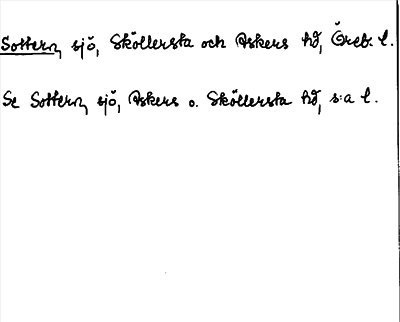 Sottern, sjö, Sköllersta och Askers hd, Öreb. l.
Se Sottern, sjö, Askers o. Sköllersta hd, s:a l.